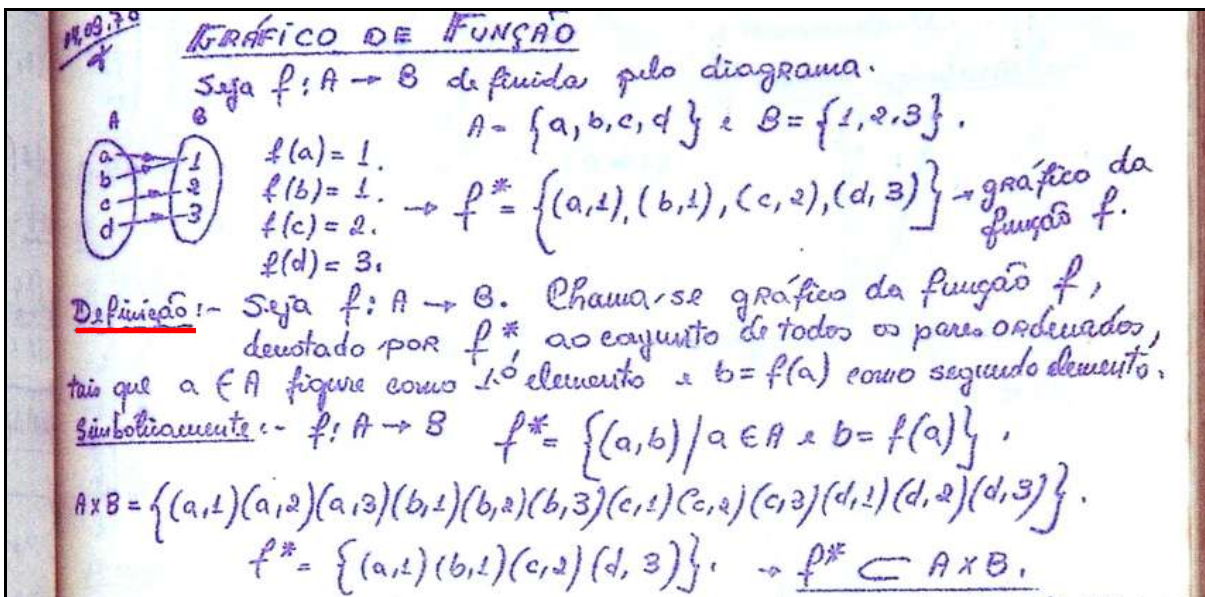 14.09.70 GRÁFICO DE FUNÇÃO
Seja f: A → B definida pelo diagrama.
A B A = {a,b,c,d} e B = {1,2,3}.
a 1 f(a) = 1.
b 2 f(b) = 1. → f* = {(a,1),(b,1),(c,2),(d,3)} → gráfico da
c 3 f(c) = 2. função f.
d f(d) = 3.
Definição:- Seja f: A → B. Chama-se gráfico da função f,
denotado por f*, ao conjunto de todos os pares ordenados,
tais que a ∈ A figure como 1.º elemento e b = f(a) como segundo elemento.
Simbolicamente:- f: A → B f* = {(a,b)/a ∈ A e b = f(a)}.
A x B = {(a,1)(a,2)(a,3)(b,1)(b,2)(b,3)(c,1)(c,2)(c,3)(d,1)(d,2)(d,3)}.
f* = {(a,1)(b,1)(c,2)(d,3)}. → f* ⊂ A x B.